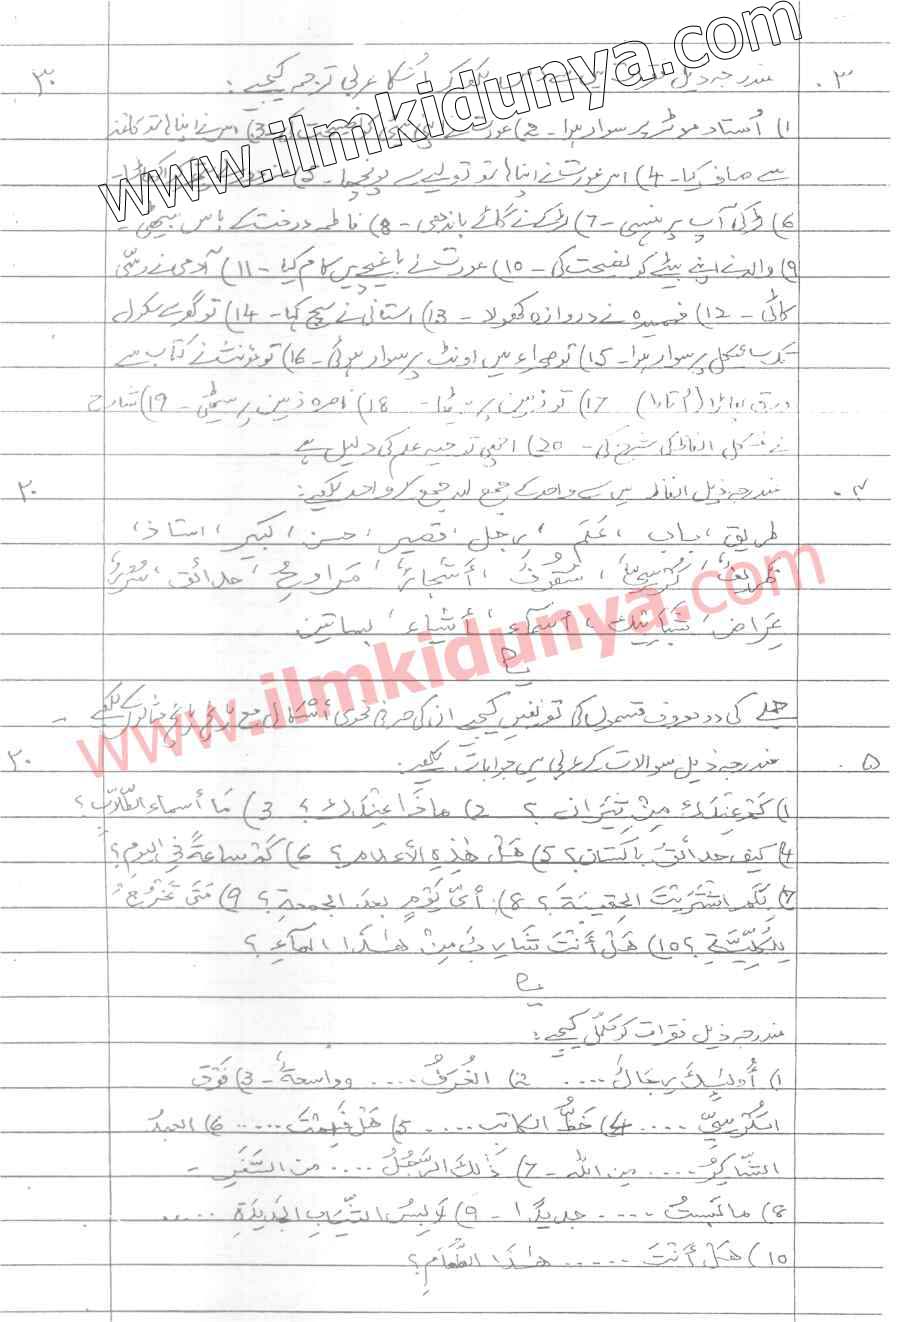 www.ilmkidunya.com
۳۰ مندرجہ ذیل کا عربی ترجمہ کیجیے : ۳۔
1) اُستاد موٹر پر سوار ہوا۔ 2) عورت نے اپنی 3) اس نے اپنا ہاتھ کاغذ
سے صاف کیا۔ 4) اس عورت نے اپنا ہاتھ تولیے سے پونچھا۔ 5)
6) لڑکی آپ پر ہنسی۔ 7) لڑکے نے گائے باندھی۔ 8) فاطمہ درخت کے پاس بیٹھی۔
9) والد نے اپنے بیٹے کو نصیحت کی۔ 10) عورت نے باغیچے میں کام کیا۔ 11) آدمی نے رسّی
کاٹی۔ 12) فہمیدہ نے دروازہ کھولا۔ 13) استانی نے سچ کہا۔ 14) تو گھر سے سکول
تک سائیکل پر سوار ہوا۔ 15) تو صحراء میں اونٹ پر سوار ہوئی۔ 16) تو مؤنث نے کتاب سے
ورق پھاڑا 17) تو زمین پر بیٹھا۔ 18) زمین پر بیٹھی۔ 19) شارح
نے مشکل الفاظ کی شرح کی۔ 20) اچھی توجیہ علم کی دلیل ہے
۲۰ مندرجہ ذیل الفاظ میں سے واحد کے جمع اور جمع کے واحد لکھیے: ۴۔
طریق، باب، عَلَم، رجل، قصیر، حسن، کبیر، استاذ،
ظریف، کُرْسِیٌّ، سُقُوفٌ، أشجارٌ، مَراوِحُ، حدائق، سُرُرٌ،
عِرَاض، شَبَابِیْكُ، أسماء، أشیاء، بساتین
یا
جملے کی دو معروف قسموں کی تعریفیں کیجیے ان کی صرفی نحوی أشکال مع پانچ پانچ مثالوں کے لکھیے۔
www.ilmkidunya.com
۲۰ مندرجہ ذیل سوالات کے عربی میں جوابات لکھیے: ۵۔
1) کَمْ عِنْدَكَ مِنْ ثِیْرَانٍ؟ 2) مَاذَا عِنْدَكَ؟ 3) مَا أسماء الطّلّاب؟
4) کیف حدائقُ باکستان؟ 5) هَلْ هٰذِهِ الأعلام؟ 6) کَمْ ساعةً في الیوم؟
7) بِکَمِ اشْتَرَیْتَ الحقیبةَ؟ 8) أيُّ یَوْمٍ بعدَ الجمعةِ؟ 9) مَتَی تَخْرُجُ
لِلْکُلِّیَّةِ؟ 10) هَلْ أَنْتَ شَارِبٌ مِنْ هٰذا المآءِ؟
یا
مندرجہ ذیل فقرات کو مکمل کیجیے:
1) أُولٰئِكَ رِجالٌ ..... 2) الغُرَفُ ..... وواسعةٌ۔ 3) فَوْقَ
الکُرْسِيِّ ..... 4) خَطُّ الکاتبِ ..... 5) هَلْ فَهِمْتَ ..... 6) العبدُ
الشّاکِرُ ..... مِن اللهِ۔ 7) ذٰلِكَ الرَّجُلُ ..... من السَّفَرِ۔
8) ما لَبِسْتُ ..... جدیدًا۔ 9) لُبْسُ الثِّیَابِ الجَدِیْدَةِ .....
10) هَلْ أَنْتَ ..... هٰذَا الطَّعَامِ؟